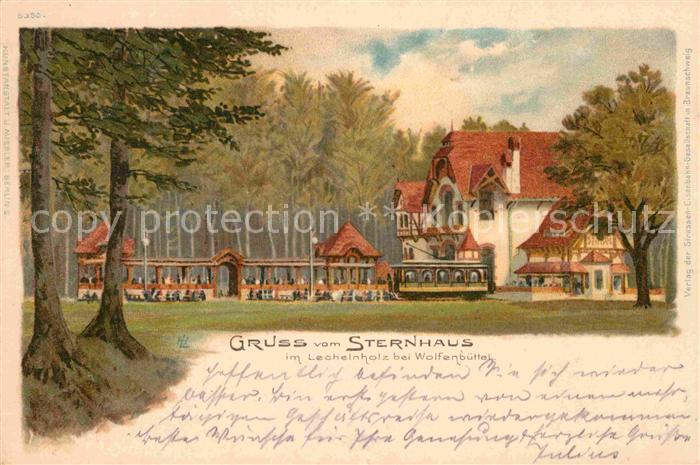 5350.
KUNSTANSTALT J. MIESLER, BERLIN S
Verlag der Strassen-Eisenbahn-Gesellschaft in Braunschweig
copyright **kopierschutz
GRUSS vom STERNHAUS
im Lechelnholz bei Wolfenbüttel
Hoffentlich befinden Sie sich wieder
besser. Bin erst gestern von einem mehr-
tägigen Geschäftsreise wiedergekommen
beste Wünsche für Ihre Genesung & herzliche Grüsse
Julius